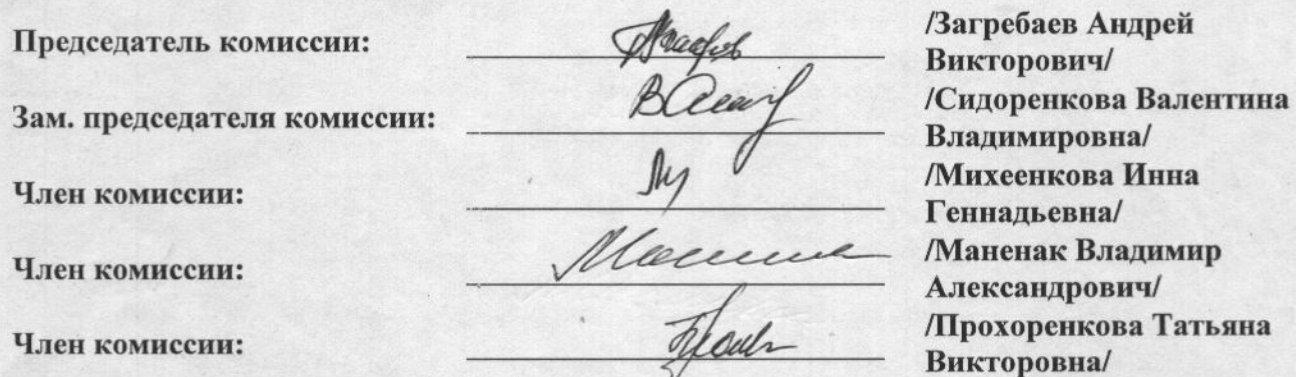 Председатель комиссии: /Загребаев Андрей
Викторович/
Зам. председателя комиссии: /Сидоренкова Валентина
Владимировна/
Член комиссии: /Михеенкова Инна
Геннадьевна/
Член комиссии: /Маненак Владимир
Александрович/
Член комиссии: /Прохоренкова Татьяна
Викторовна/